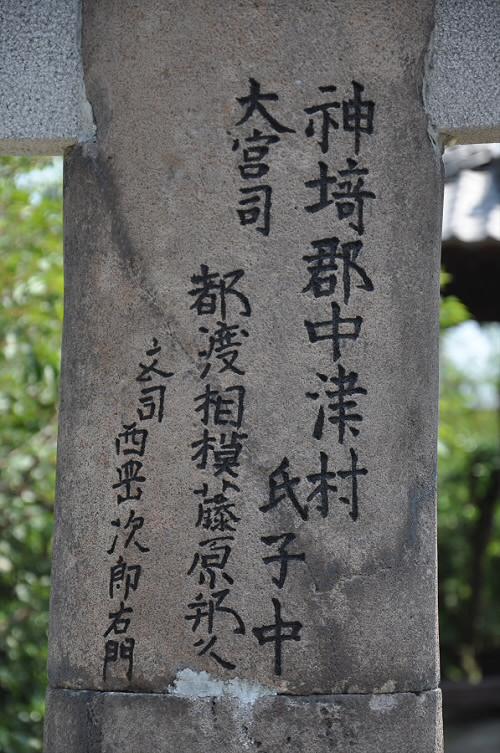 神埼郡中津村
氏子中
大宮司
都渡相模藤原邦久
文司
西岡次郎右門